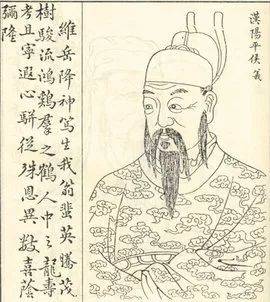 漢陽平侯義
維岳降神篤生我翁蜚英騰茂
樹駿流鴻鷄羣之鶴人中之龍壽
考且寧遐心駢從殊恩異數喜蔭
彌隆